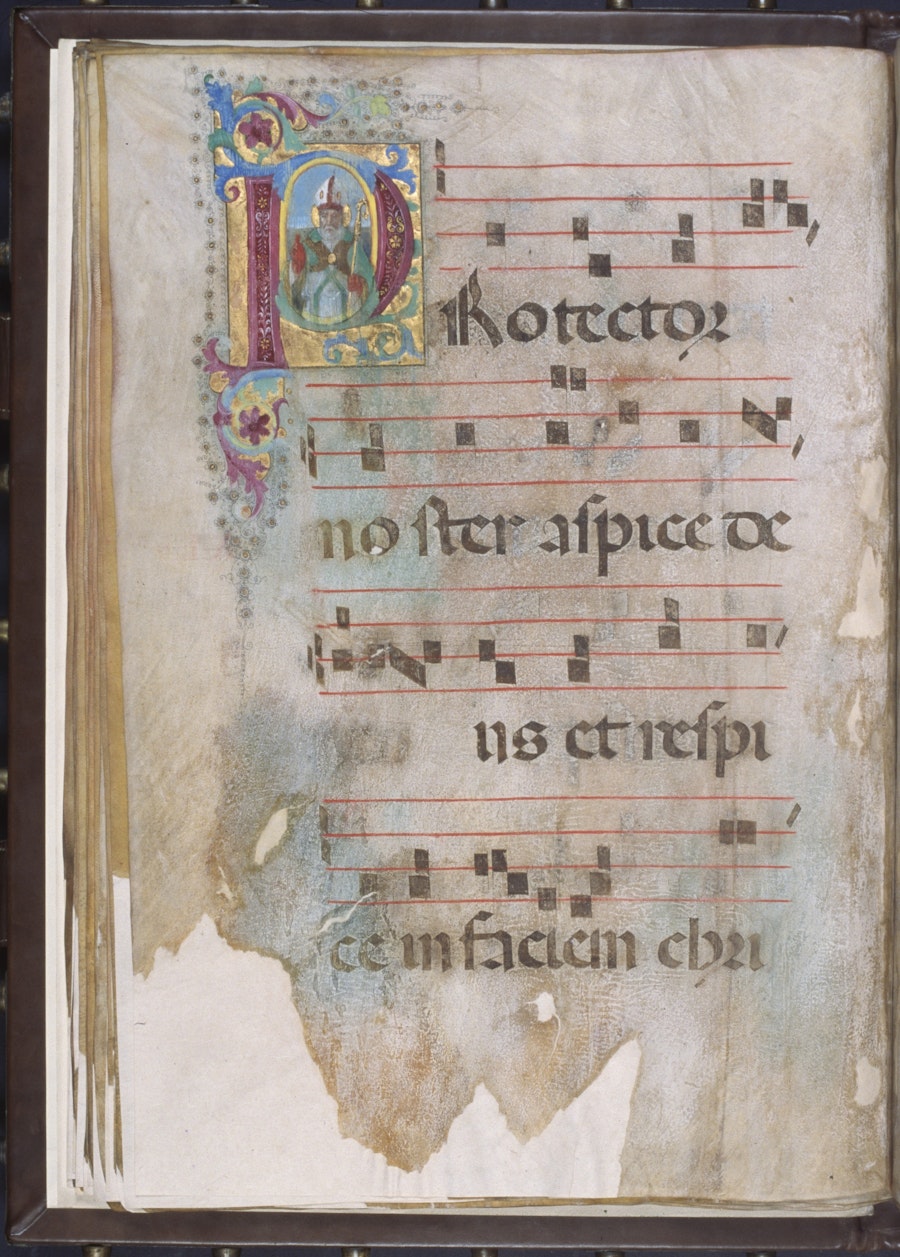 PRotector
noster aspice de
us et respi
ce in faciem chri